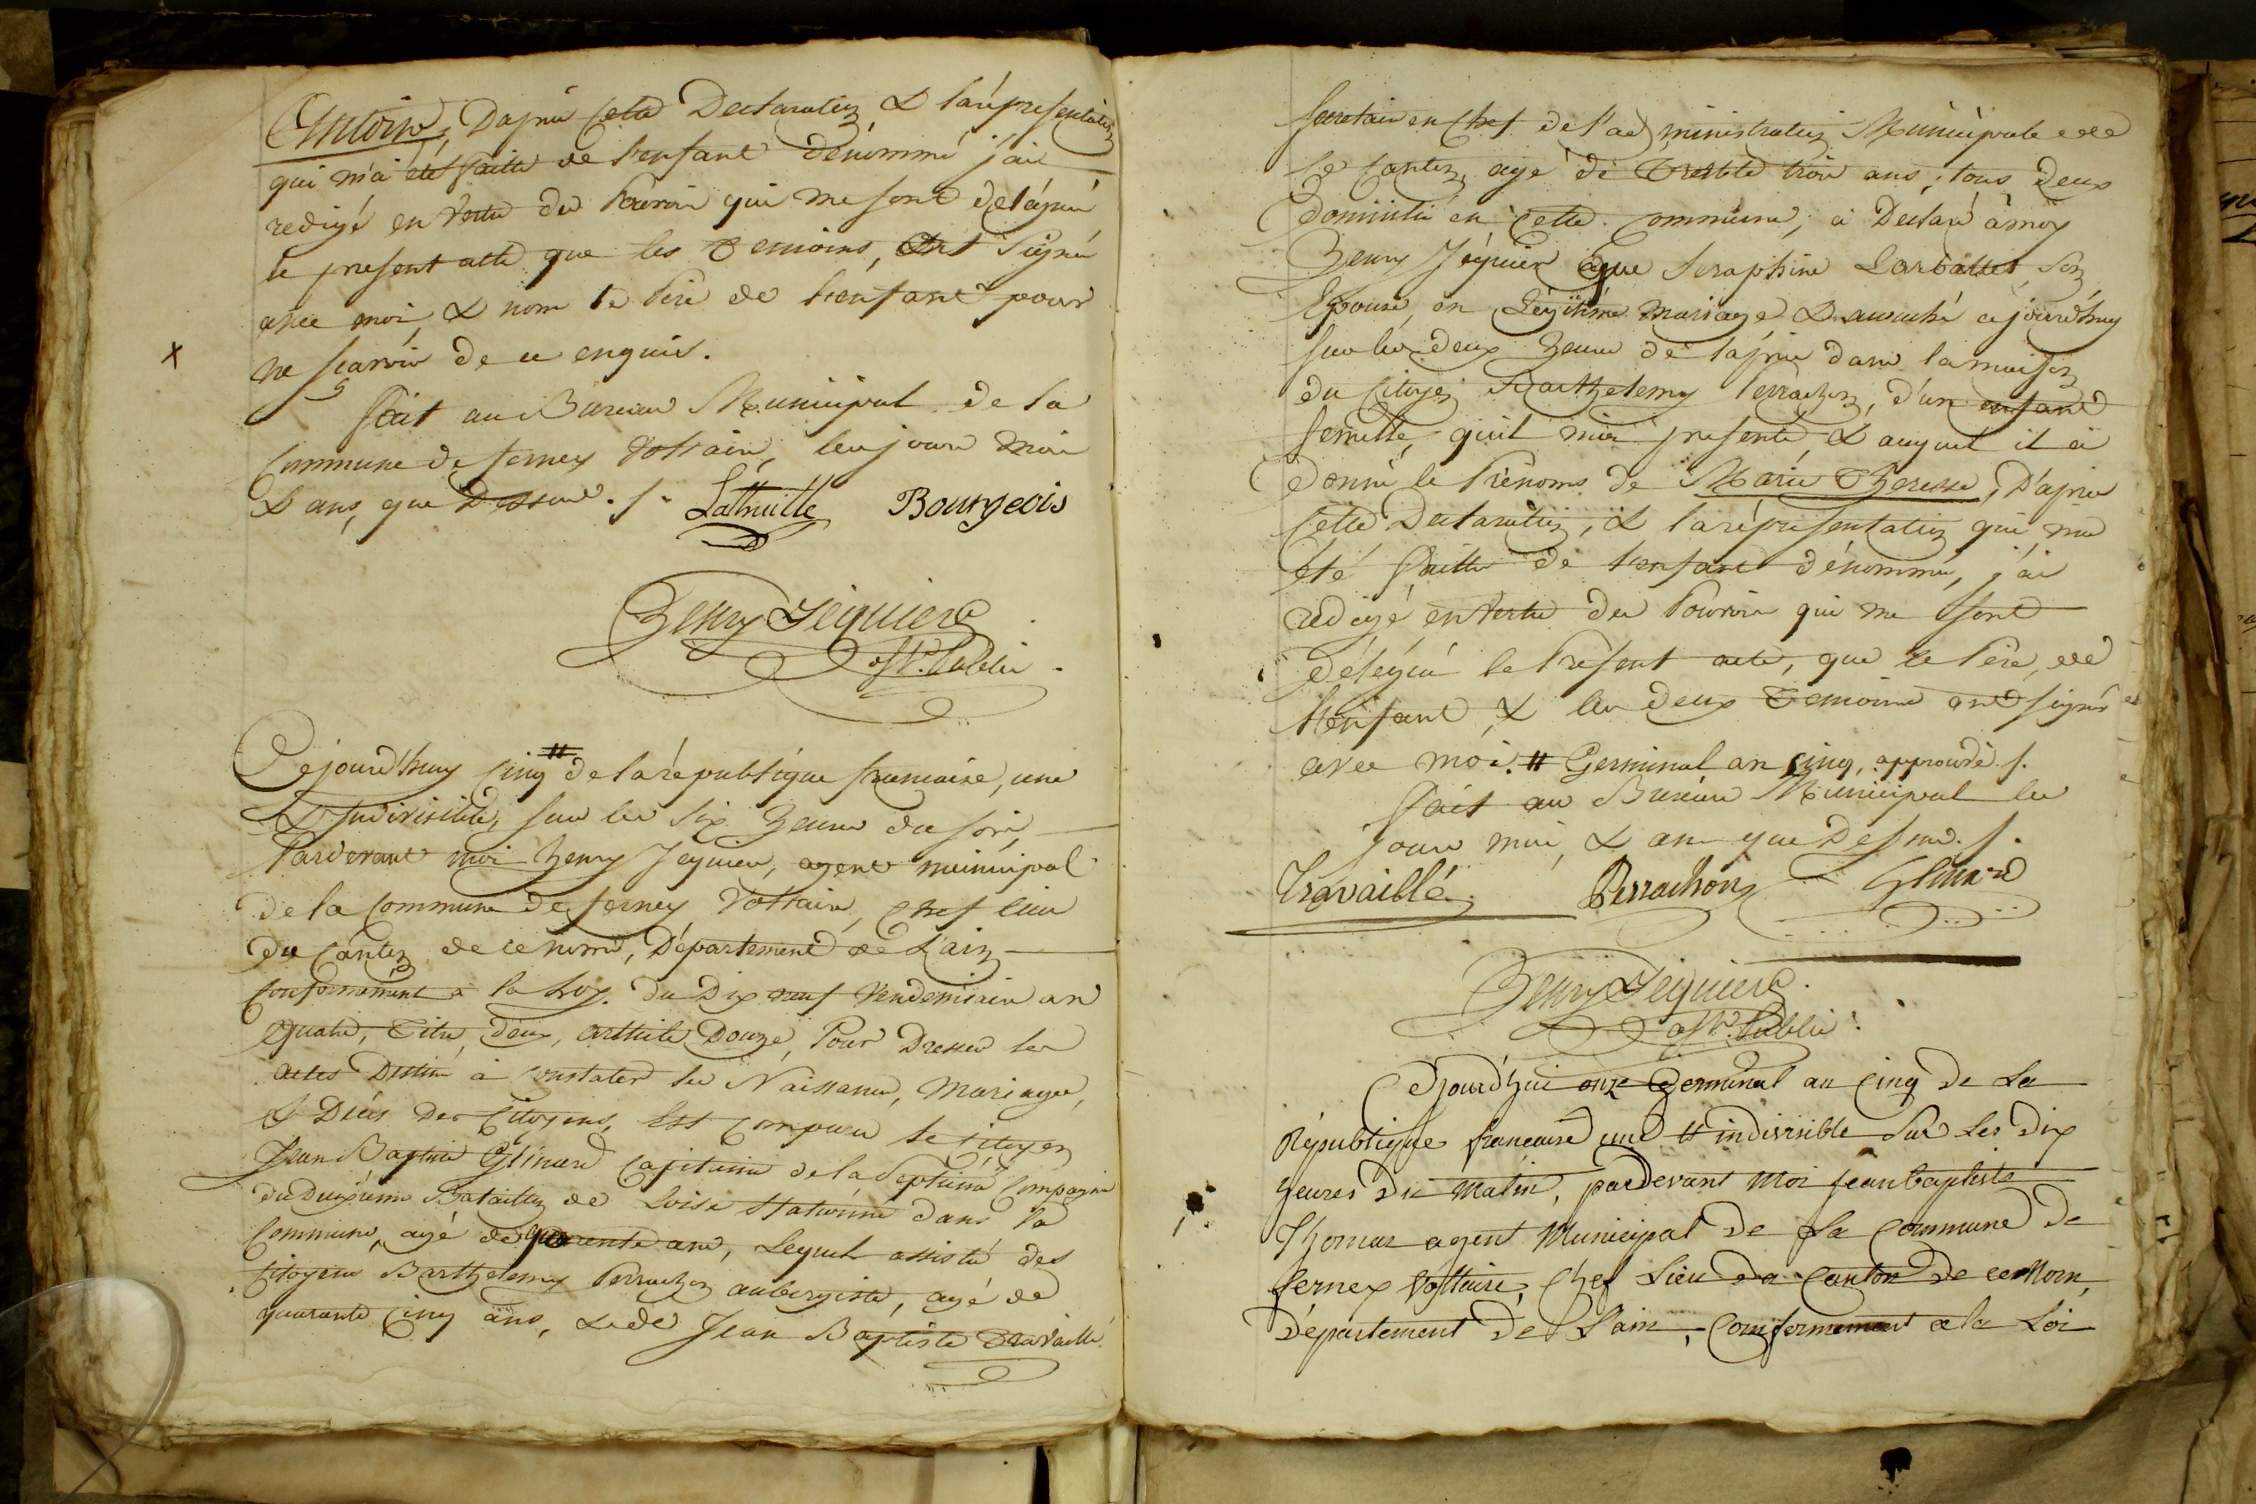 Antoine, Daprès Cette Declaration & la réprésentation
qui m'a été faitte de l'enfant dénommé j'ai
redigé en Vertu des Pouvoirs qui me sont delégués
le present acte que les Temoins, Ont Signés
avec moi, & non le Pere de l'enfant pour
ne scavoir de ce enquis.
Fait au Bureau Municipal de la
Commune de ferney Voltaire, les jours mois
& ans, que Dessus. /.
Lathuille Bourgeois
Henry Jéquier
off.er Public
Cejourd'huy Cinq # de la république francaise, une
& Indivisible, sur les Six heures du soir,
Pardevant moi henry Jequier, agent municipal
de la Commune de ferney Voltaire, Chef lieu
du Canton de ce nom, Département de L'ain
Conformément a la Loy du Dix neuf Vendemiaire an
Quatre, Titre deux, Artticle Douze, Pour Dresser les
actes Destinés à Constater les Naissances, Mariages,
& Décés des Citoyens, Est Comparu le Citoyen
Jean Baptiste Glinard Capitaine de la Septieme Compagnie
du Deuxieme Bataillon de Loise Stationné dans la
Commune, agé de quarante ans, Lequel assisté des
Citoyens Barthelemy Perrachon aubergiste, agé de
quarante Cinq ans, & de Jean Baptiste Travaillé
Secretaire en Chef de l'administration Municipale de
Ce Canton, agé de Trente trois ans, tous Deux
Domiciliés en Cette Commune, à Declaré à moy
Henry Jéquier que Seraphine Larbattet, Son
Epouse, en Légitime Mariage & accouché cejourd'huy
sur les deux heures de l'après dans la maison
du Citoyen Barthelemy Perrachon, d'un enfant
femelle, qu'il m'a presenté, & auquel il a
Donné le Prénoms de Marie Theresse, D'après
Cette Declaration, & la réprésentation qui m'a
été faitte de l'enfant dénommé, j'ai
redigé en Vertu des Pouvoirs qui me sont
délégués le Présent acte, que le Pére, de
l'enfant, & les deux Temoins ont signés
avec moi. # Germinal an cinq, approuvé. /.
Fait au Bureau Municipal les
jours mois, & an que Dessus. /.
Travaillé Perrachon Glinard
Henry Jéquier
off.er Public
Cejourdhui onze Germinal an Cinq de La
République francaise une et indivisible Sur Les Dix
heures Du Matin, pardevant Moi Jean baptiste
Thomas agent Municipal De La Commune De
fernex Voltaire, Chef Lieu du Canton De ce Nom,
Département De L'ain, Conformement a la Loi